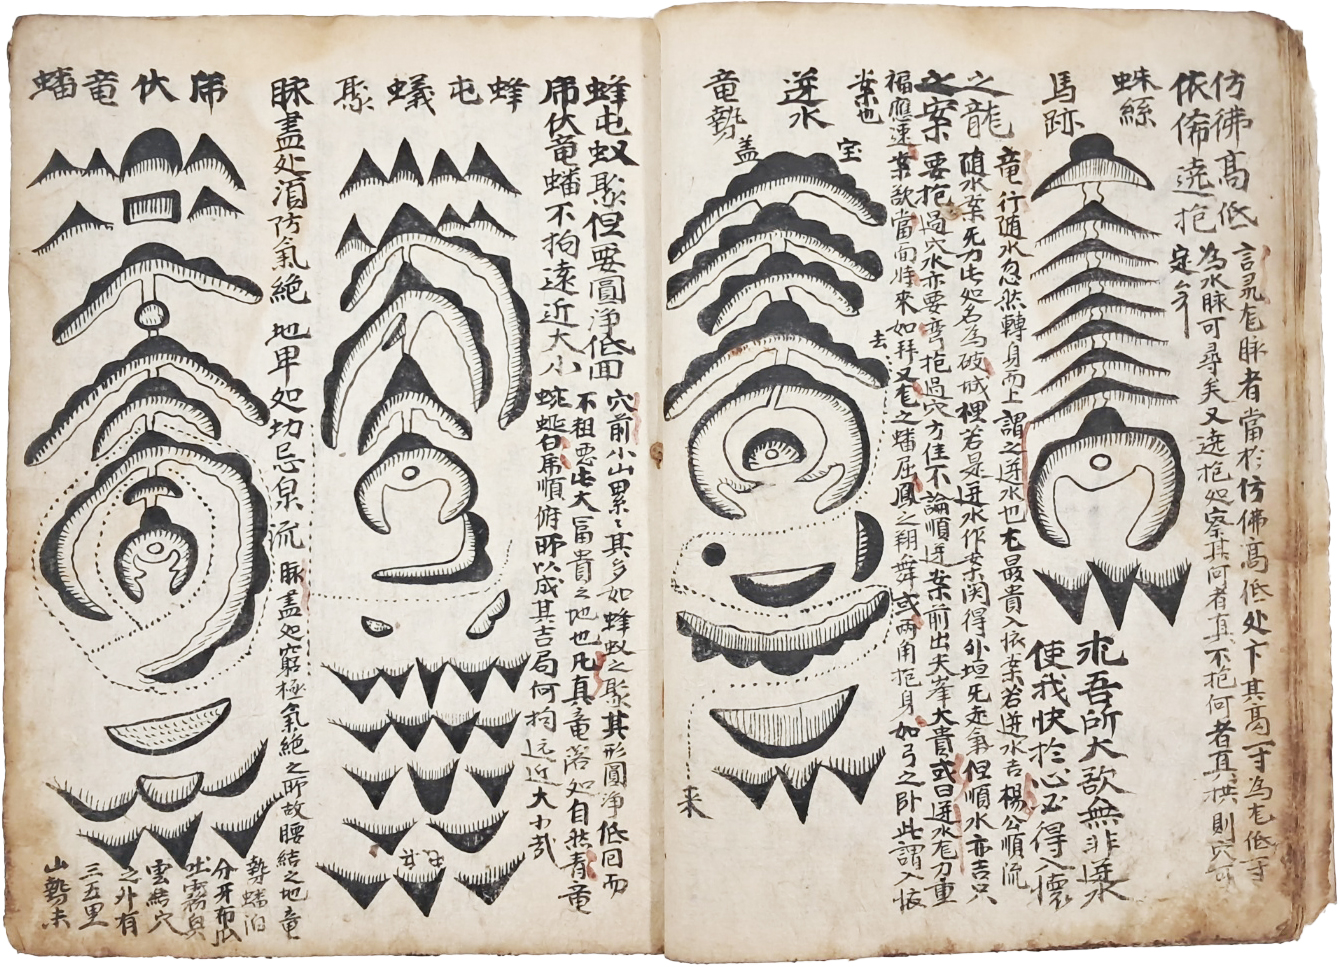 仿彿高低
依俙遶抱
言氣尨脉者當於仿佛高低处下其高一寸為尨低寸
為水脉可尋矣又遶抱处察其何者真不抱何者真拱則穴可
定矣
蛛絲
馬跡
求吾所大欲無非逆水
使我快於心必得入懷
竜行随水忽然轉身而上謂之逆水也尨最貴入懷案若逆水吉楊公順流
之龍
随水案无力此处名為破城裡若是逆水作案関得外垣旡走氣但順水亦吉只
之案要抱過穴水亦要弯抱過穴方佳不論順逆案前出夫峯大貴或曰逆水尨力重
福應速案欲當面特來如拜又尨之蟠屈鳳之翔舞或兩角抱身如弓之卧此謂入懷
案也
逆水
竜勢
宝
盖
去
来
蜂屯蚁聚但要圓淨低面
席伏竜蟠不拘遠近大小
穴前小山累〻其多如蜂蚁之聚其形圓淨低回而
不粗惡此大冨貴之地也凡真竜落处自然青竜
蜿蜒白席順俯所以成其吉局何拘远近大小哉
蜂屯蟻聚
脉盡处湏防氣絕
地卑处切忌泉流
脉盡处窮極氣絶之所故腰結之地竜
勢蟠泊
分牙布爪
吐霧興
雲結穴
之外有
三五里
山勢未
席伏竜蟠